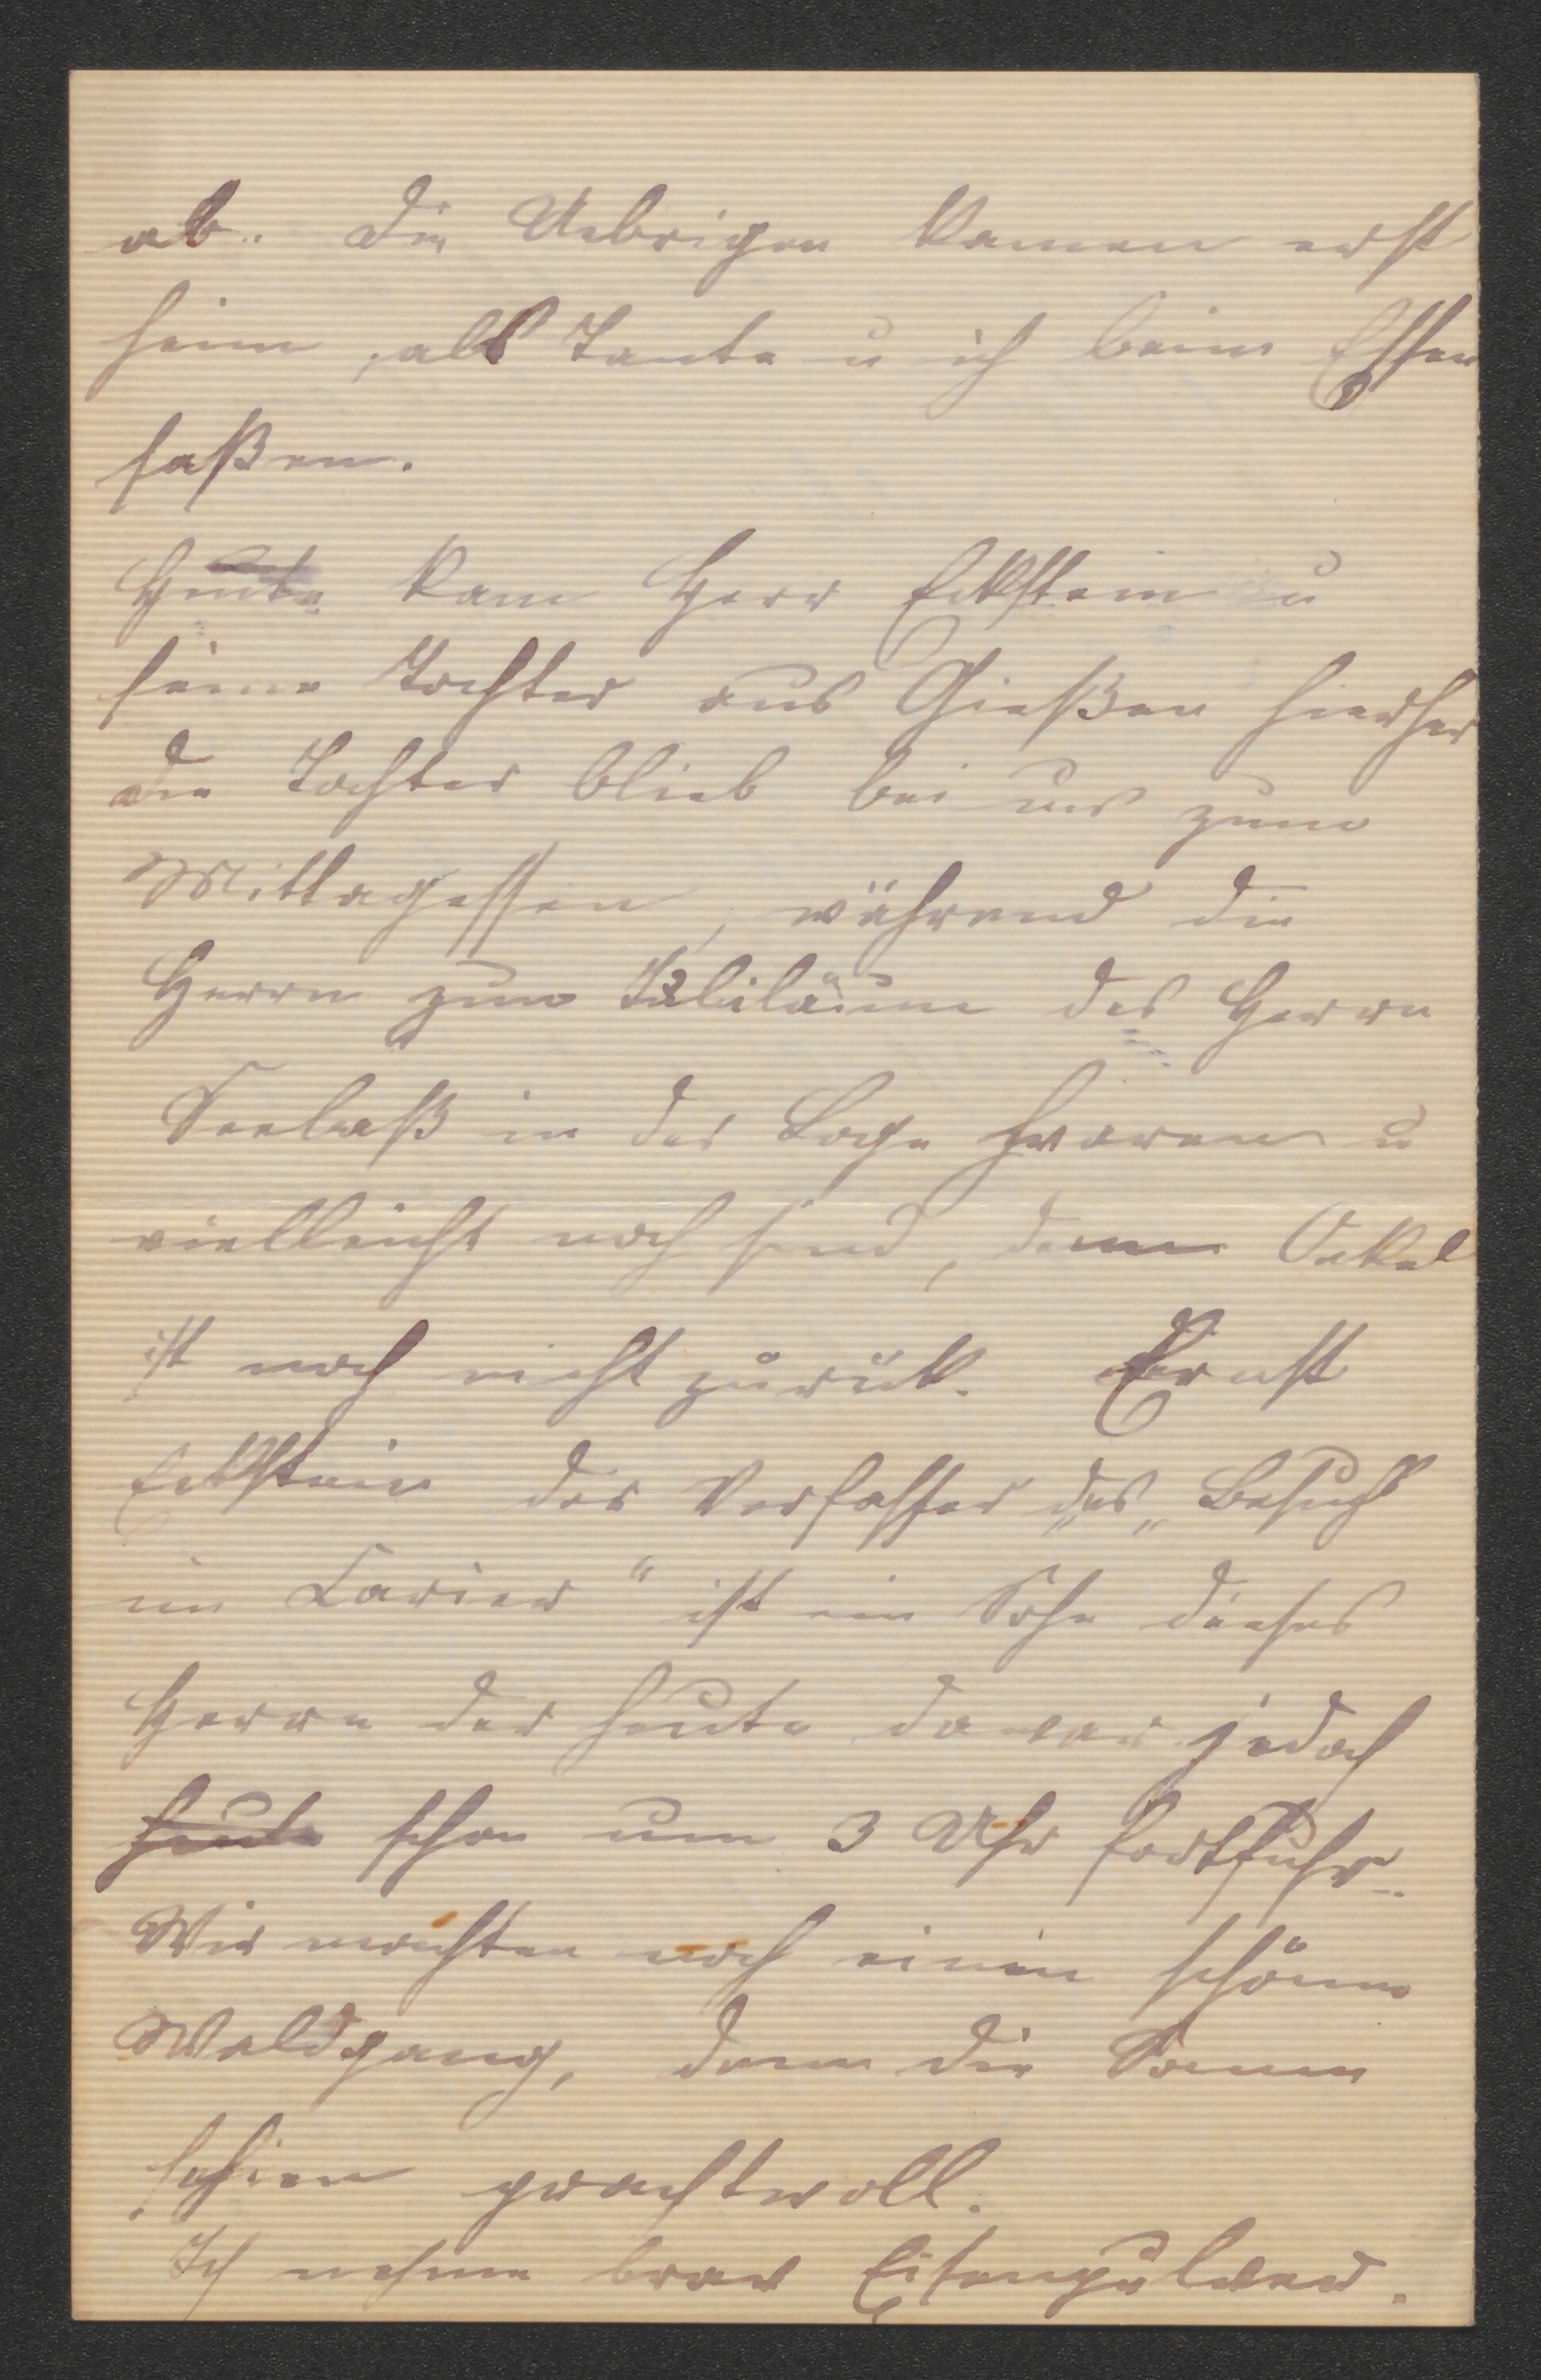 ab. Die Uebrigen kamen erst
heim, als Tante u ich beim Essen
saßen.
Heute kam Herr Eckstein u
seine Tochter aus Gießen hierher
die Tochter blieb bei uns zum
Mittagessen, während die
Herrn zum Jubiläum des Herrn
in der Loge waren u
vielleicht noch sind, denn Onkel
ist noch nicht zurück. Ernst
Eckstein der Verfasser des „Besuch
im Carcer“ ist ein Sohn dieses
Herrn der heute da war jedoch
heute schon um 3 Uhr fortfuhr.
Wir machten noch einen schönen
Waldgang, denn die Sonne
schien prachtvoll.
Ich nehme brav Eisenpulver.